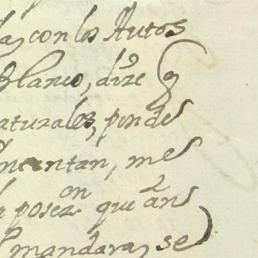 con los Autos
Blanco, dize q
naturales, pinde
mentan, mes
la poseen que ans
mandara, se